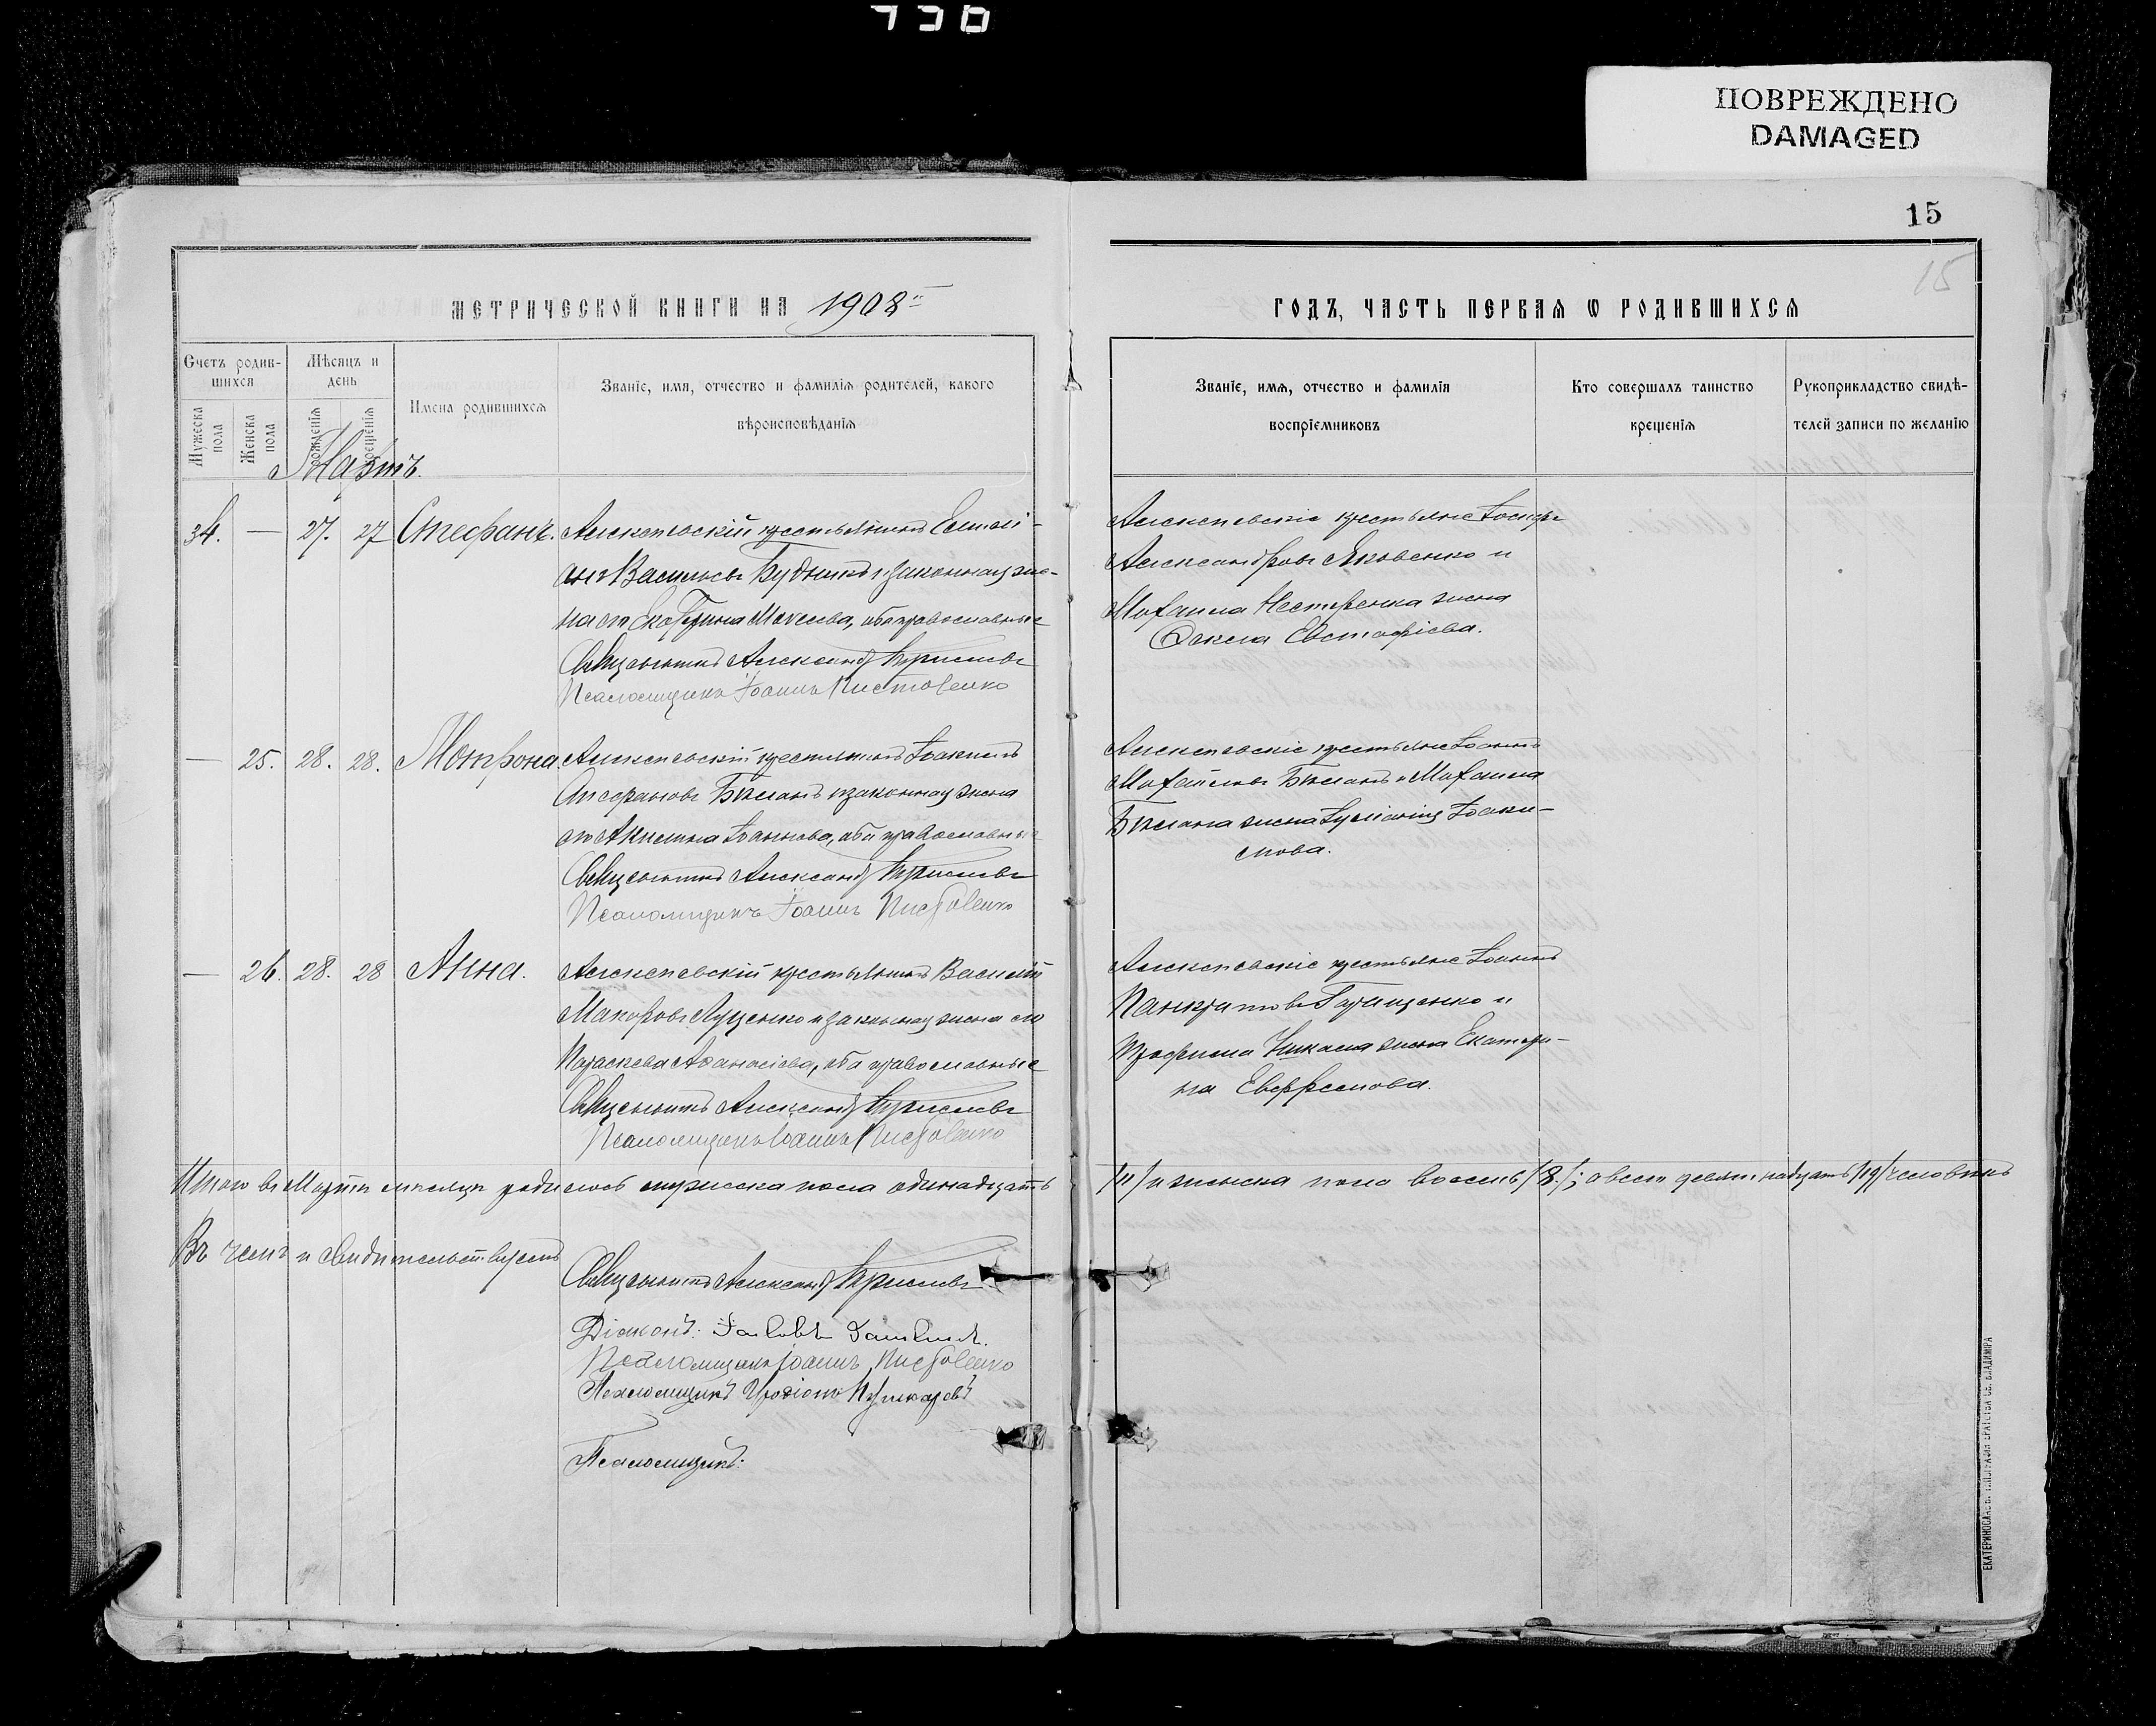 ПОВРЕЖДЕНО
DAMAGED
15
15
МЕТРИЧЕСКОЙ КНИГИ НА 1908
ГОДЪ, ЧАСТЬ ПЕРВАЯ Ѡ РОДИВШИХСЯ
Счетъ родив-
шихся
Мужеска пола
Женска пола
Мѣсяцъ и
день
рожденія
крещенія
Имена родившихся
Званіе, имя, отчество и фамилія родителей, какого
вѣроисповѣданія
Званіе, имя, отчество и фамилія
воспріемниковъ
Кто совершалъ таинство
крещенія
Рукоприкладство свидѣ-
телей записи по желанію
Мартъ.
34. — 27. 27 Стефанъ.
Алексѣевскій крестьянинъ Емелі-
анъ Васильевъ и законная же-
на его Екатерина, оба православные
Священникъ Александръ
Псаломщикъ Іоаннъ
Алексѣевскіе крестьяне Іосифъ
Александровъ Яковенко и
Михаила Нестеренка жена
Ѳекла Евстафіева.
— 25. 28. 28. Мотрона.
Алексѣевскій крестьянинъ Іоакимъ
Стефановъ Бѣланъ и законная жена
его Акилина Іоаннова, оба православные
Священникъ Александръ
Псаломщикъ Іоаннъ
Алексѣевскіе крестьяне Іоаннъ
Михайловъ Бѣланъ и Михаила
Бѣлана жена Іуліанія Іоаки-
мова.
— 26. 28. 28 Анна.
Алексѣевскій крестьянинъ Василій
Макаровъ Луценко и законная жена его
Параскева Аѳанасіева, оба православные
Священникъ Александръ
Псаломщикъ Іоаннъ
Алексѣевскіе крестьяне Іоаннъ
Панкратовъ Геращенко и
Трофима жена Екатери-
на Евфремова.
Итого въ Мартѣ мѣсяцѣ родилось мужеска пола одинадцать /11/ и женска пола восемь /8/; а всего девятнадцать /19/ человѣкъ
Въ чемъ и свидѣтельствуемъ
Священникъ Александръ
Діаконъ: Іаковъ
Псаломщикъ Іоаннъ
Псаломщикъ Пушкаревъ
Псаломщикъ:
ЕКАТЕРИНОСЛАВЪ. ТИПОГРАФІЯ БРАТСТВА СВ. ВЛАДИМІРА